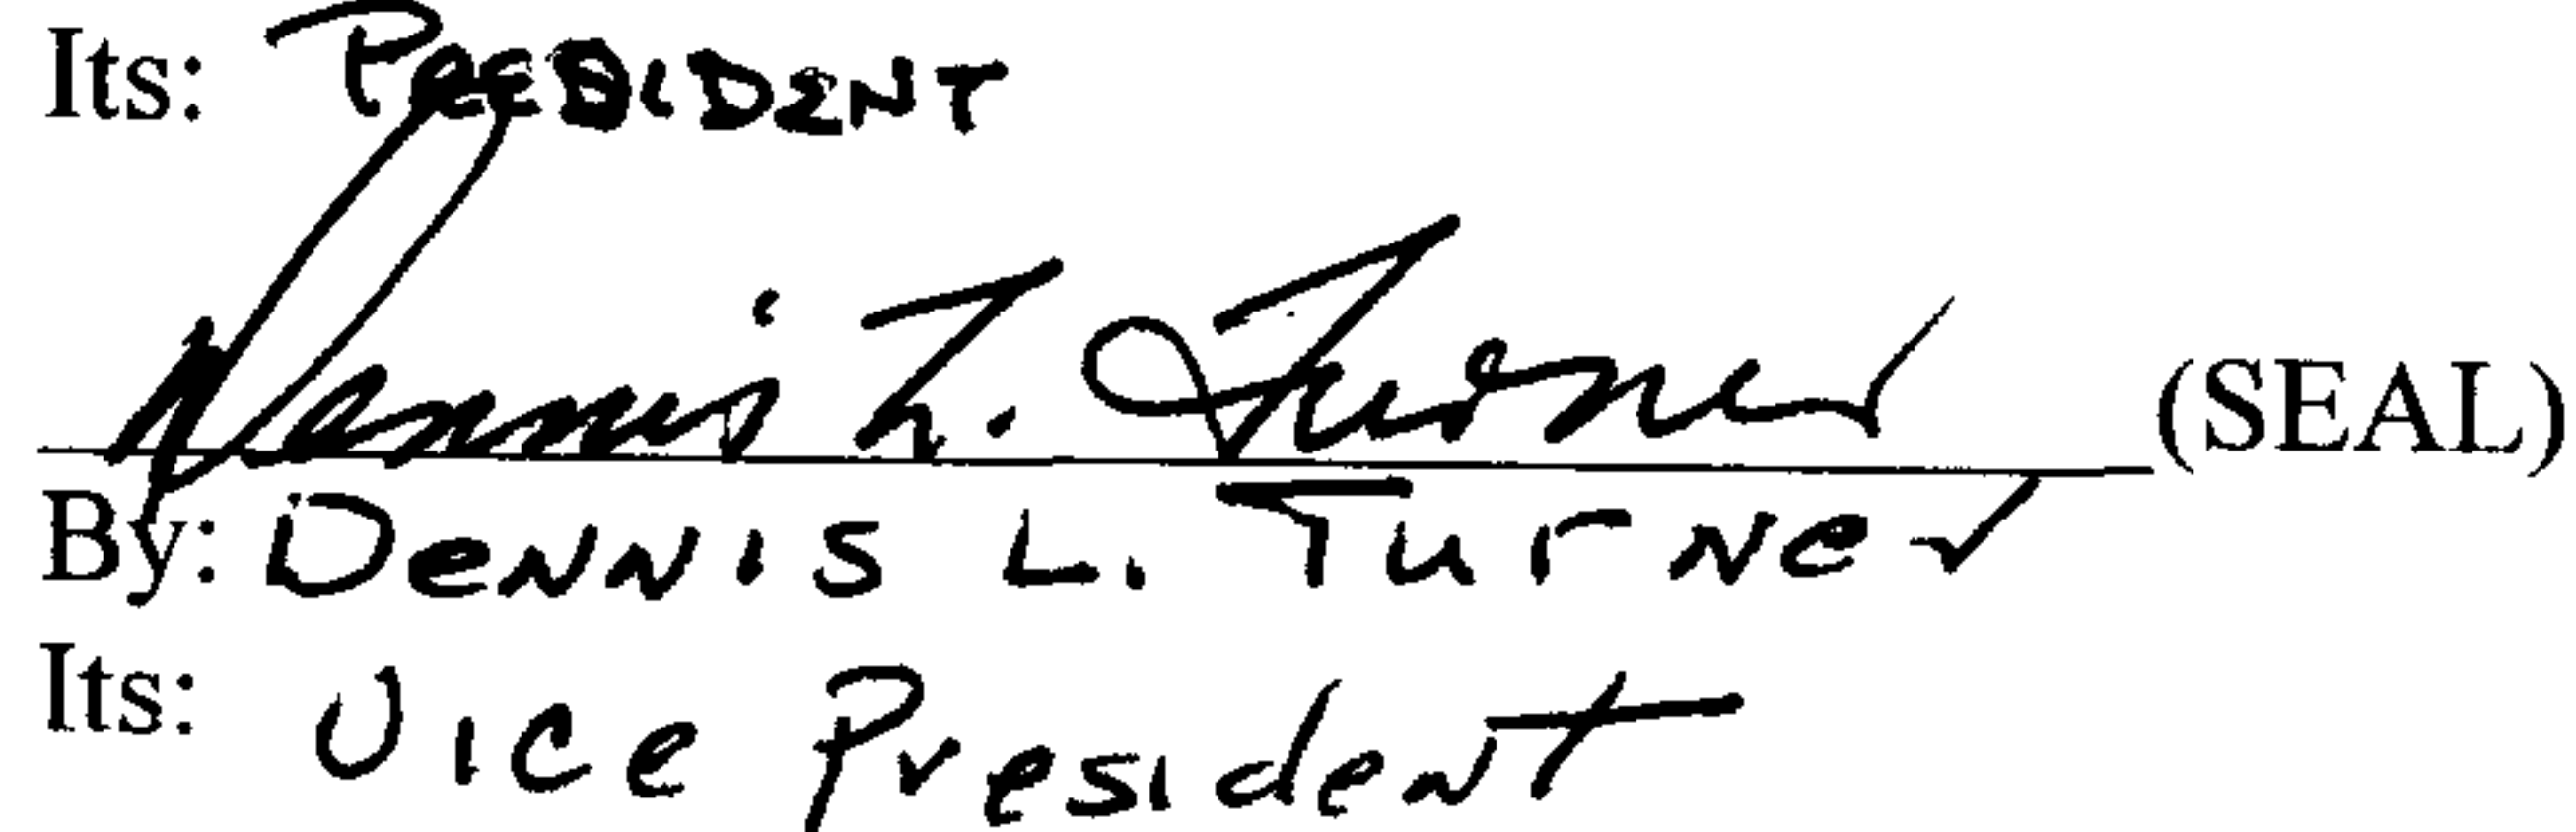 Its: PRESIDENT
Dennis L. Turner (SEAL)
By: Dennis L. Turner
Its: Vice President